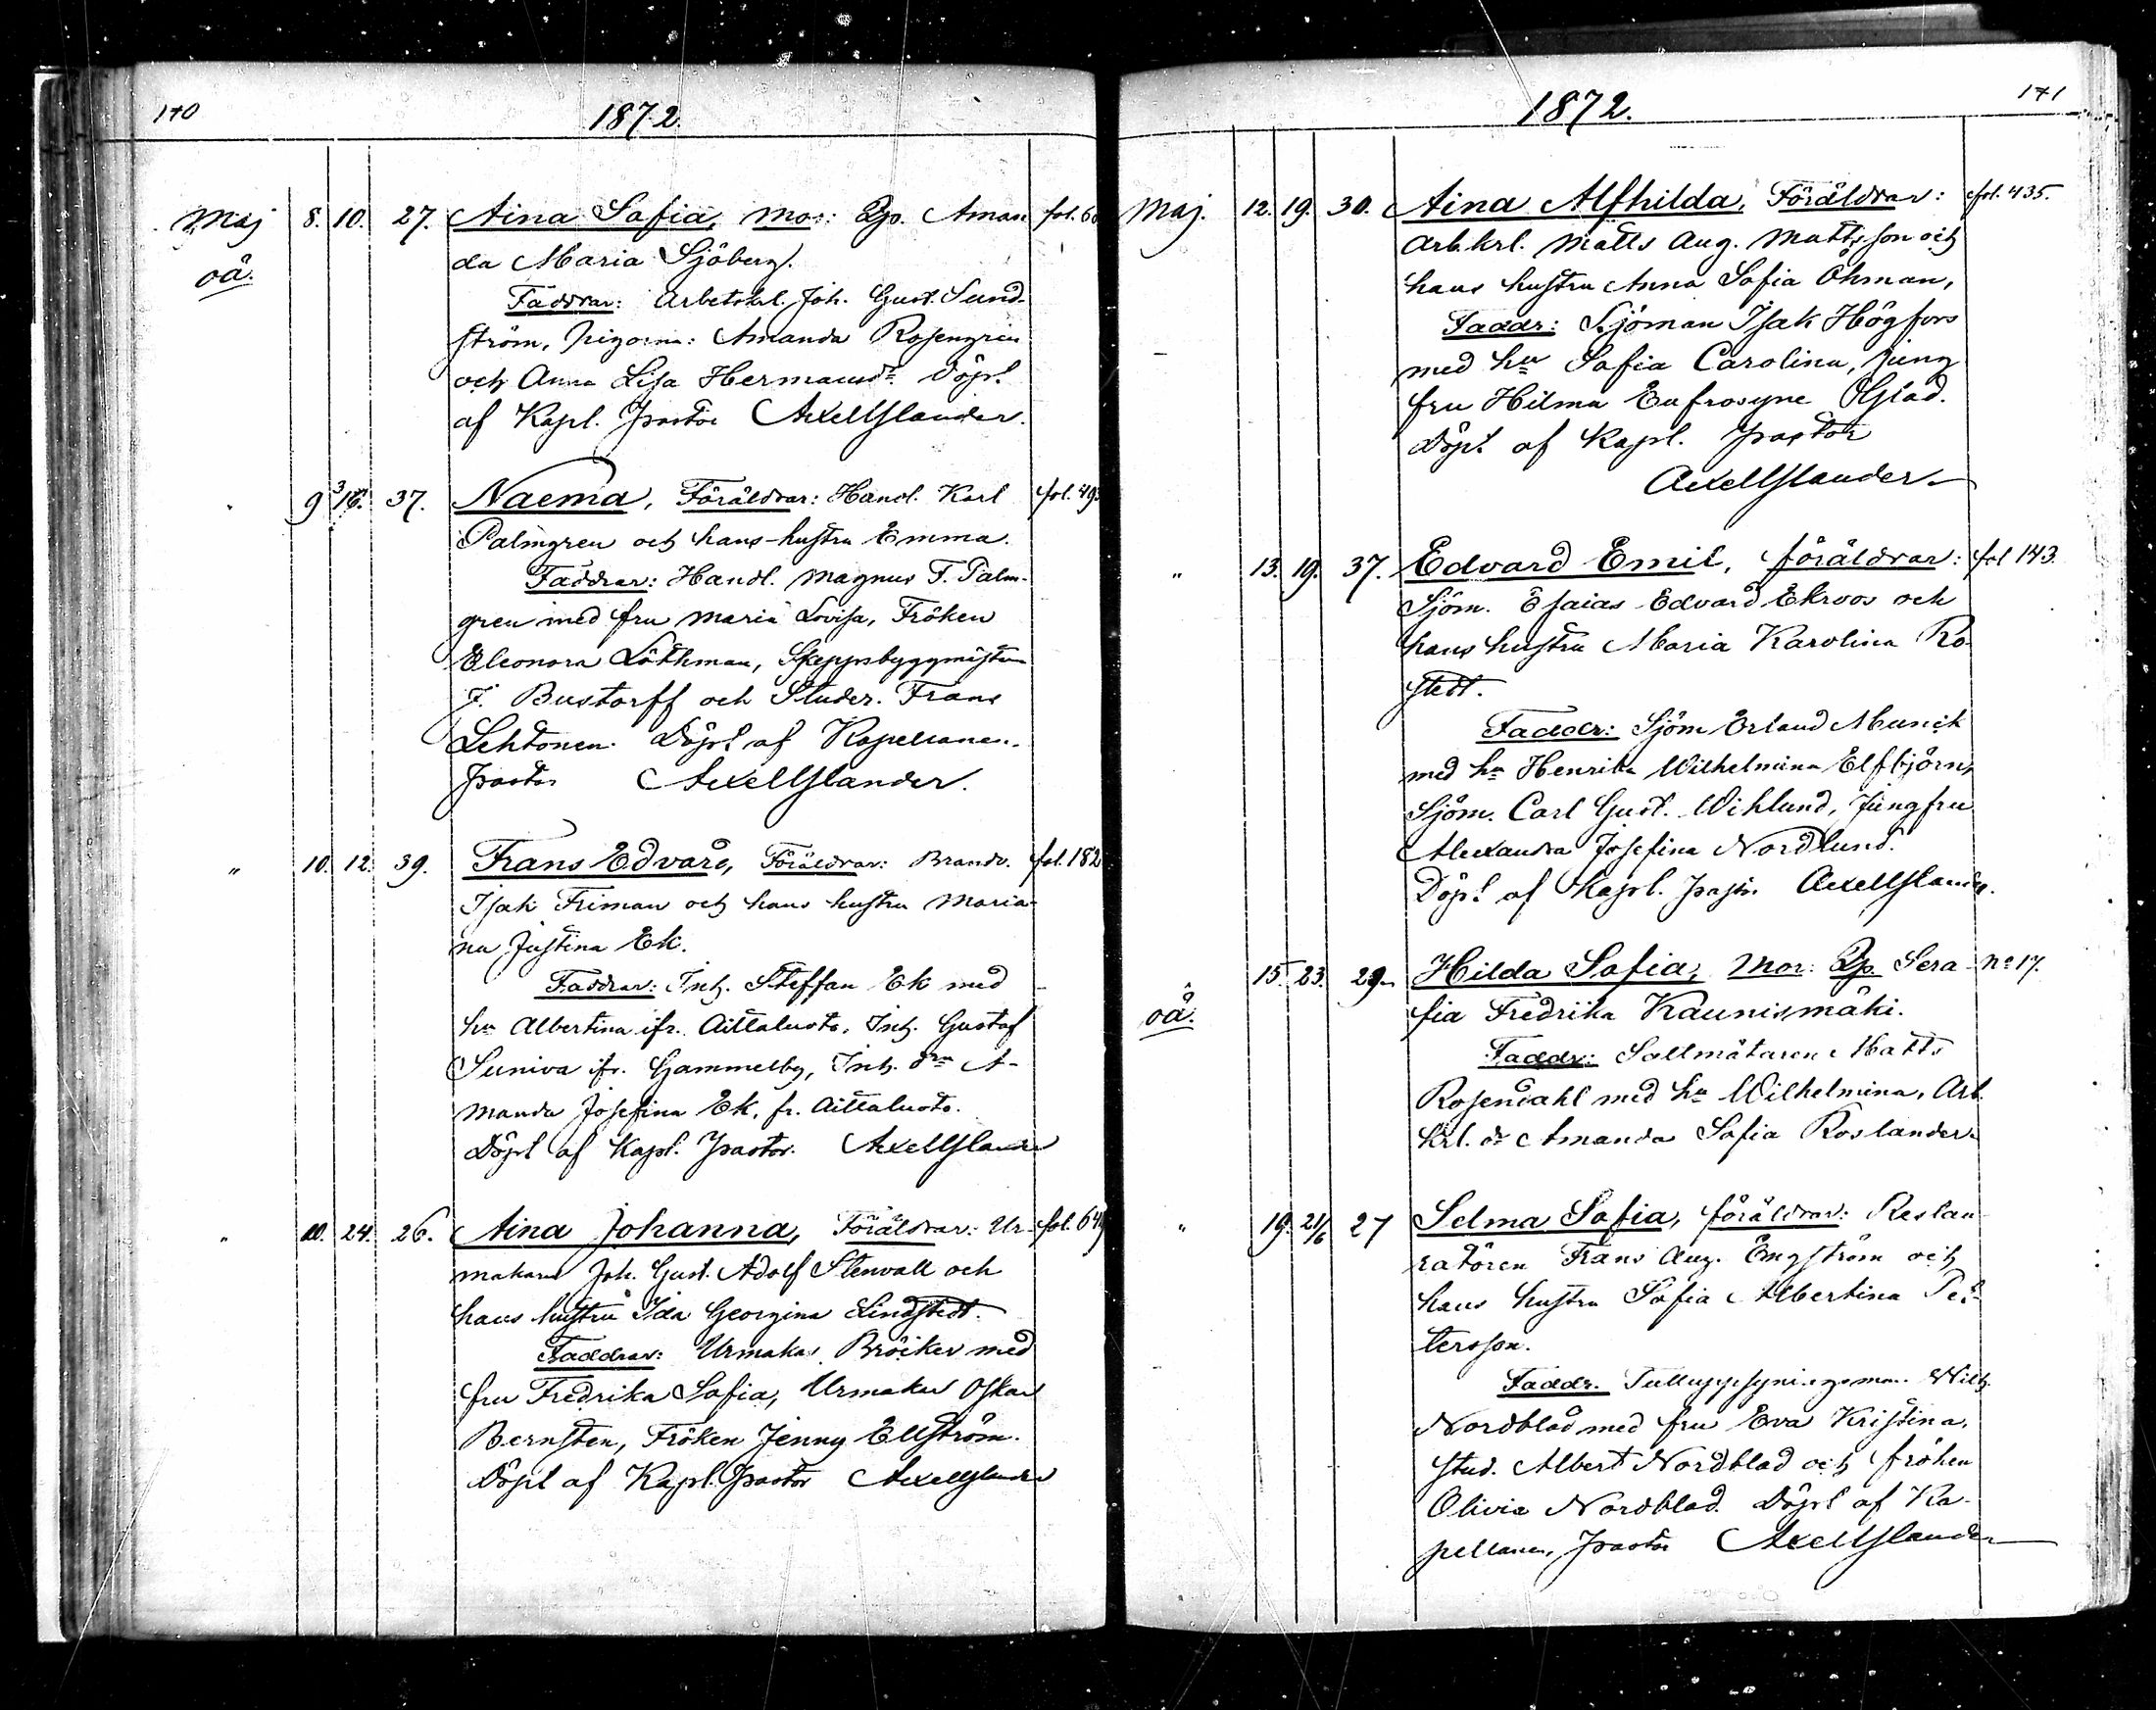 140
1872.
Maj 8. 10. 27. Aina Sofia, mor: Qp. Aman fol. 60
oä. da Maria Sjöberg.
Faddrar: Arbetskl. Joh. Gust. Sund-
ström, pigorna: Amanda Rosengren
och Anna Lisa Hermansdr Döpt
af Kapl. Pastor Axel Islander.
9 3/16. 37. Naema, Föräldrar: Handl. Karl fol. 493
Palmgren och hans hustru Emma.
Faddrar: Handl. Magnus F. Palm-
gren med fru Maria Lovisa, Fröken
Eleonora Löthman, Skeppsbyggmästar
J. Bustorff och Studer. Frans
Lehtonen. Döpt af Kapellanen.
Pastor Axel Islander.
" 10. 12. 39. Frans Edvard, Föräldrar: Brandv. fol. 182
Isak Friman och hans hustru Maria-
na Justina Ek.
Faddrar: Inh. Steffan Ek med
hu Albertina ifr. Aittaluoto, Inh. Gustaf
Suniva ifr. Gammelby, Inh. drn A-
manda Josefina Ek, fr. Aittaluoto.
Döpt af Kapl. Pastor. Axel Islander
" 10. 24. 26. Aina Johanna, Föräldrar: Ur- fol. 649
makaren Joh. Gust. Adolf Stenvall och
hans hustru Ida Georgina Lindstedt.
Faddrar: Urmakar Bröcker med
fru Fredrika Sofia, Urmaker Oskar
Bernsten, Fröken Jenny Ellström.
Döpt af Kapl. Pastor Axel Islander
141
1872.
Maj. 12. 19. 30. Aina Alfhilda, Föräldrar: fol. 435.
Arb.krl. Matts Aug. Mattsson och
hans hustru Anna Sofia Öhman,
Faddr: Sjöman Isak Högfors
med hu Sofia Carolina, jung
fru Hilma Eufrosyne
Döpt af Kapl. Pastor
Axel Islander
" 13. 19. 37. Edvard Emil, föräldrar: fol 143.
Sjöm. Esaias Edvard Ekroos och
hans hustru Maria Karolina Ro-
stedt.
Faddr: Sjöm Erland Munck
med hu Henrika Wilhelmina Elfbjörn,
Sjöm. Carl Gust. Wiklund, Jungfru
Alexandra Josefina Nordlund.
Döpt af Kapl. Pastor Axel Islander.
" 15. 23. 29. Hilda Sofia, Mor: Qp. Sera- No 17.
oä. fia Fredrika Kaunismäki.
Faddr: Saltmätaren Matts
Rosendahl med hu Wilhelmina, Arb.
krl. dr Amanda Sofia Roslander.
" 19. 21/6 27 Selma Sofia, föräldrar: Restau-
ratören Frans Aug. Engström och
hans hustru Sofia Albertina Pet-
tersson.
Faddr. Tulluppsyningsman Wilh.
Nordblad med fru Eva Kristina,
stud. Albert Nordblad och fröken
Olivia Nordblad. Döpt af Ka-
pellanen, Pastor Axel Islander